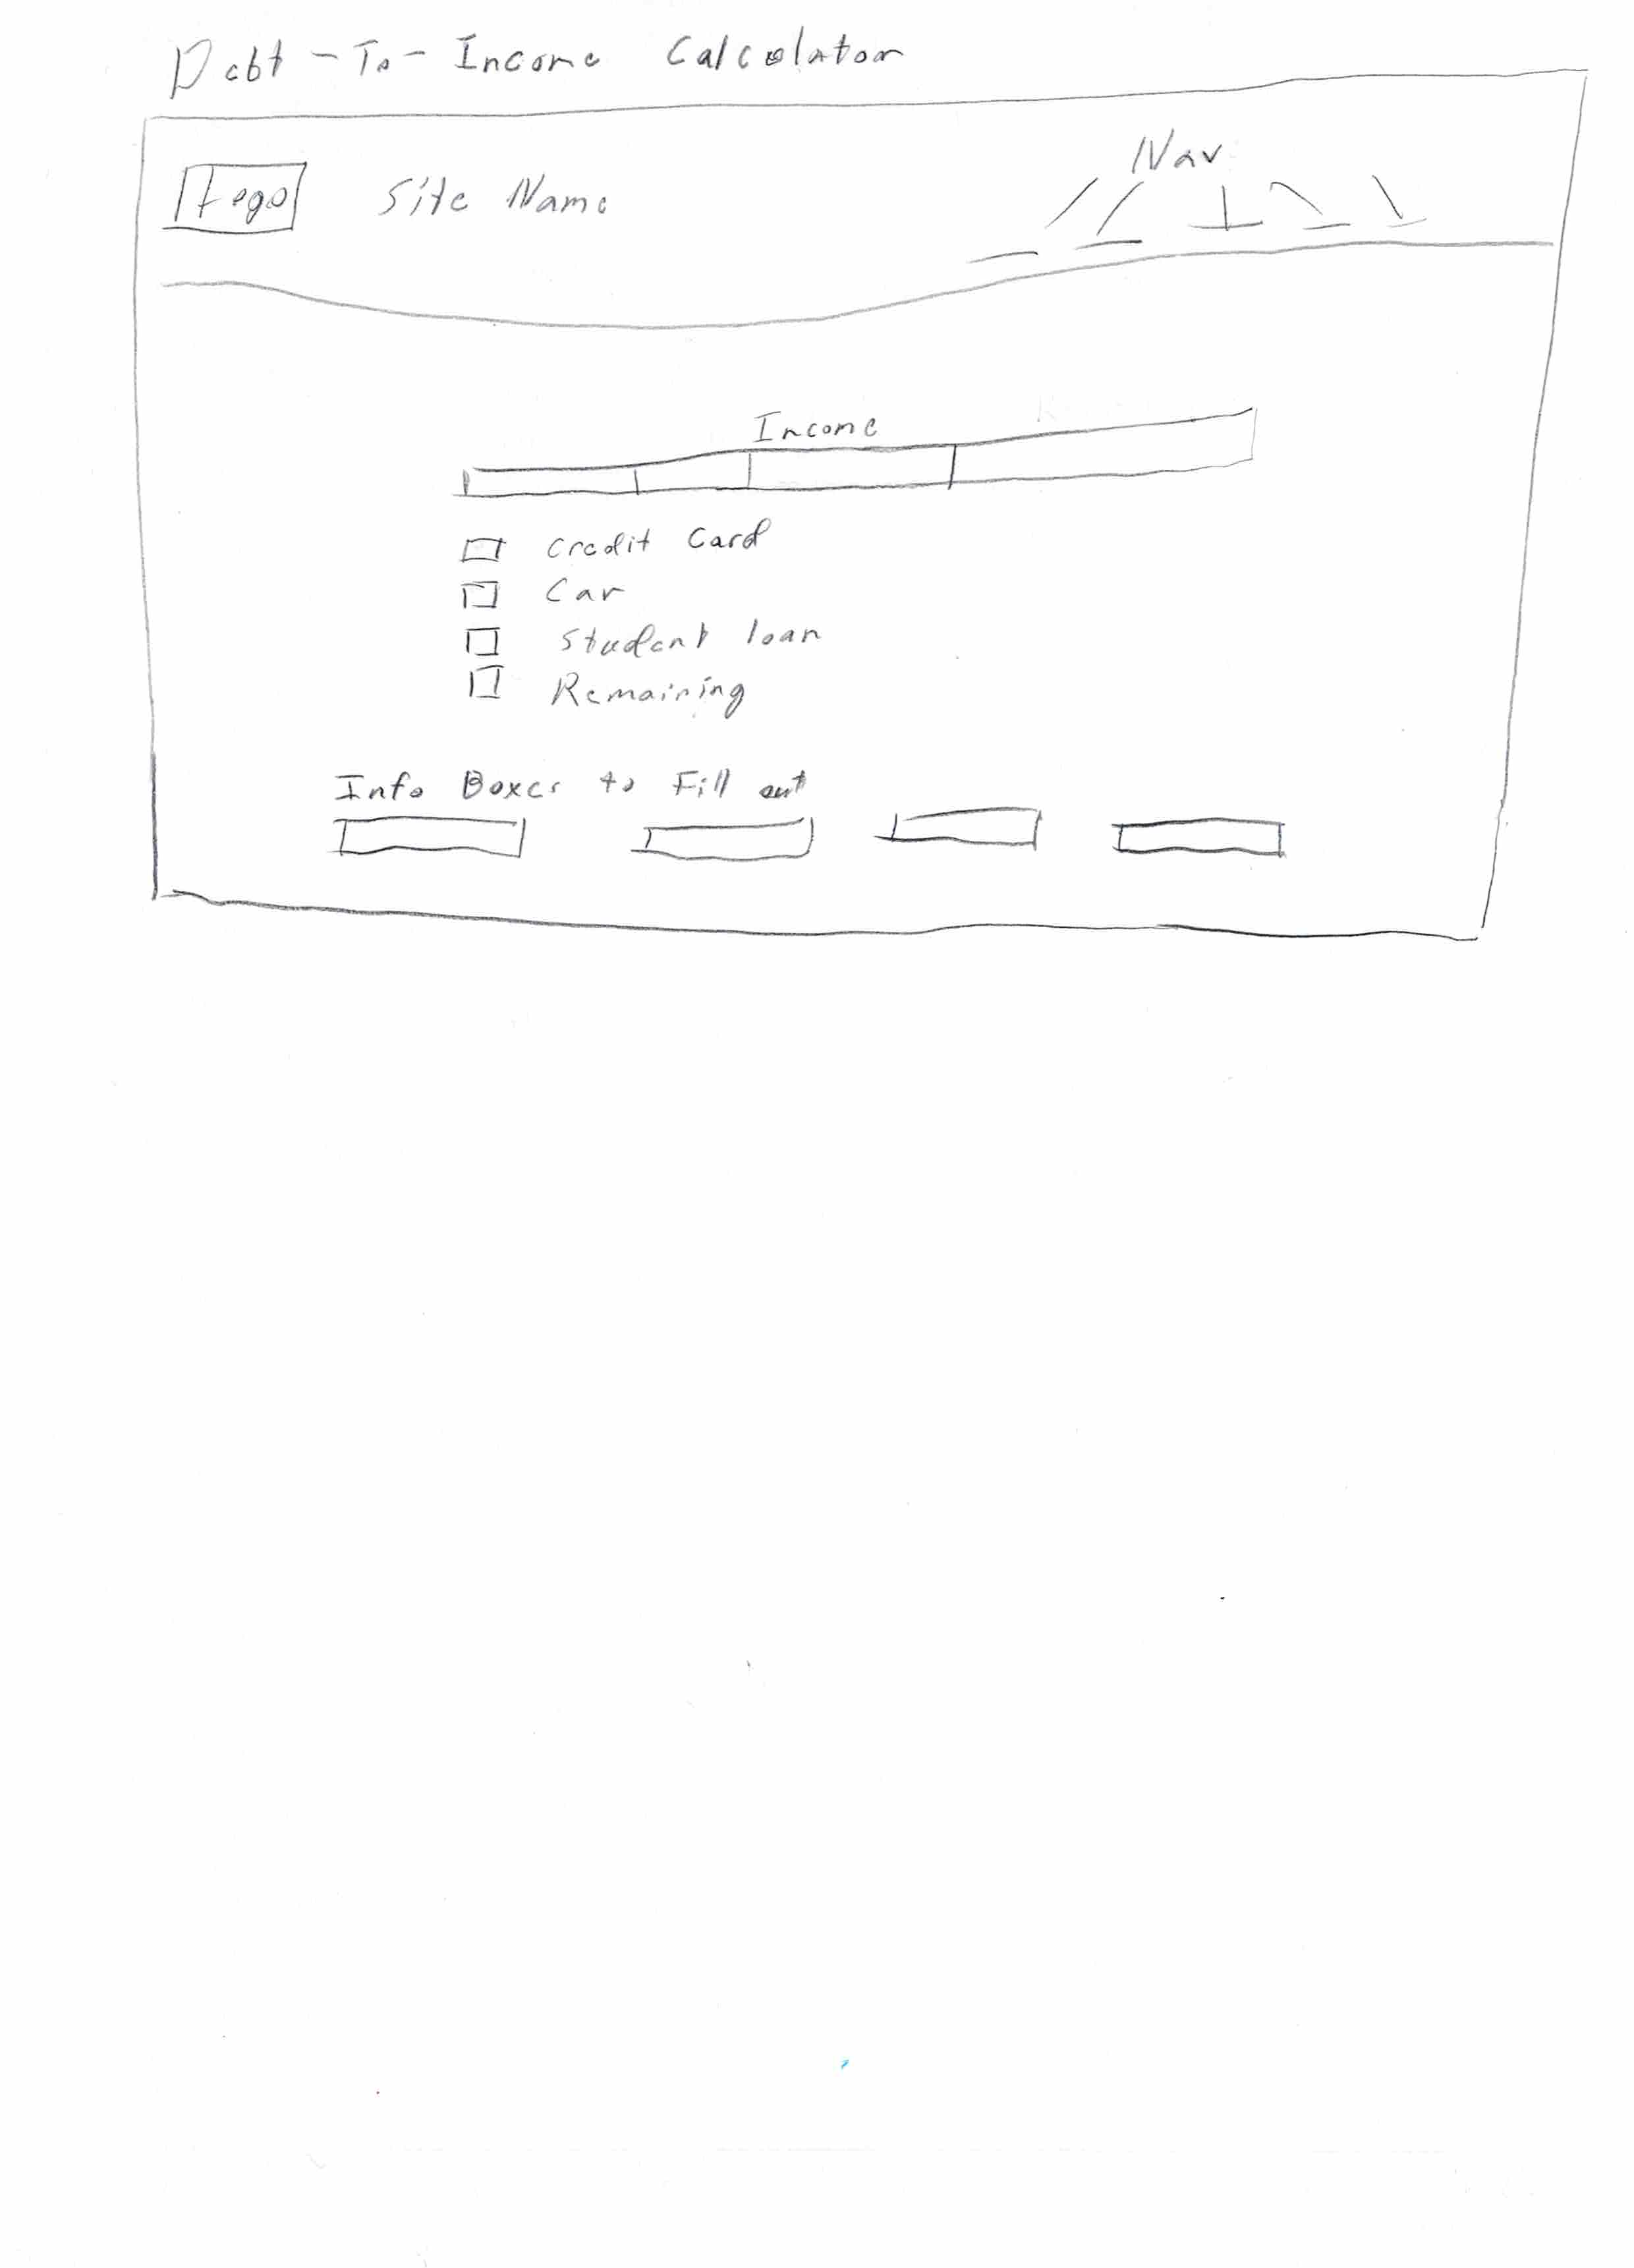 Debt-To-Income Calculator
Logo Site Name
Nav
Income
Credit Card
Car
Student loan
Remaining
Info Boxes to Fill out